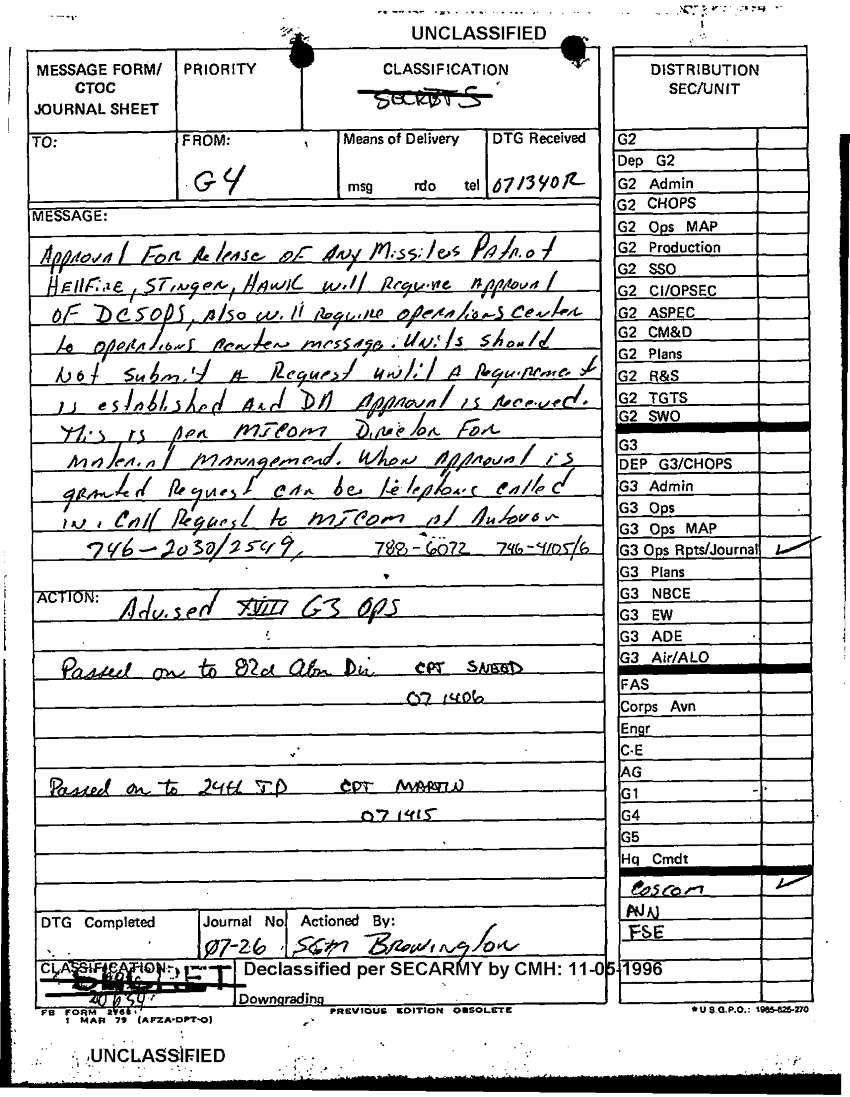 UNCLASSIFIED
MESSAGE FORM/
CTOC
JOURNAL SHEET
PRIORITY
CLASSIFICATION
SECRET
TO:
FROM:
G4
Means of Delivery
msg rdo tel
DTG Received
071340R
MESSAGE:
Approval For Release OF Any Missiles Patriot
HEllFire, STinger, HAWK will Require Approval
OF DCSOPS, Also will Require operations Center
to operations center message. Units should
Not submit A Request until A Requirement
is established And DA Approval is received.
This is per MICOM Director For
Material Management. When Approval is
granted Request can be telephone called
in. Call Request to MICOM at Autovon
746-2030/2549, 788-6072 746-4105/6
ACTION:
Advised XVIII G3 OPS
Passed on to 82d Abn Div CPT SNEED
07 1406
Passed on to 24th ID CPT MARTIN
07 1415
DTG Completed
Journal No
07-26
Actioned By:
SGM Browington
CLASSIFICATION:
Declassified per SECARMY by CMH: 11-05-1996
Downgrading
FB FORM
1 MAR 79 (AFZA-DPT-O)
PREVIOUS EDITION OBSOLETE
DISTRIBUTION
SEC/UNIT
G2
Dep G2
G2 Admin
G2 CHOPS
G2 Ops MAP
G2 Production
G2 SSO
G2 CI/OPSEC
G2 ASPEC
G2 CM&D
G2 Plans
G2 R&S
G2 TGTS
G2 SWO
G3
DEP G3/CHOPS
G3 Admin
G3 Ops
G3 Ops MAP
G3 Ops Rpts/Journal ✓
G3 Plans
G3 NBCE
G3 EW
G3 ADE
G3 Air/ALO
FAS
Corps Avn
Engr
C-E
AG
G1
G4
G5
Hq Cmdt
Coscom ✓
AVN
FSE
*U.S.G.P.O.: 1985-625-270
UNCLASSIFIED